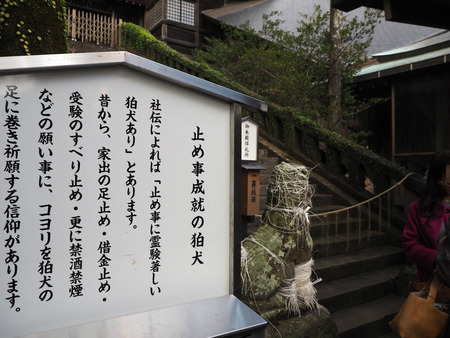 止め事成就の狛犬
社伝によれば、「止め事に霊験著しい
狛犬あり」とあります。
昔から、家出の足止め・借金止め・
受験のすべり止め・更に禁酒禁煙
などの願い事に、コヨリを狛犬の
足に巻き祈願する信仰があります。